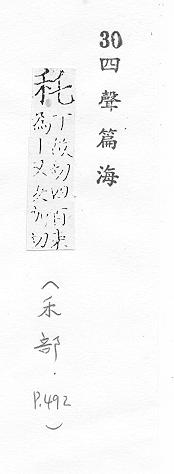 30 四聲篇海
秅
丁故切四百秉
為丨又加切
(禾部.P.492)